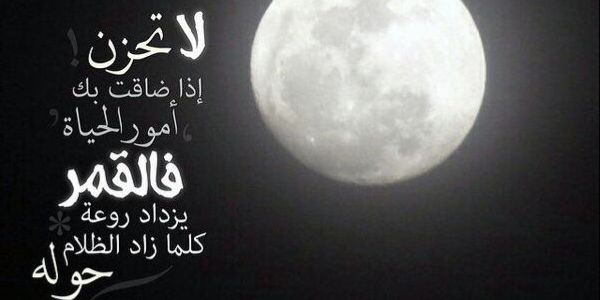 لا تحزن!
إذا ضاقت بك
أمور الحياة،
فالقمر
يزداد روعة
كلما زاد الظلام
حوله